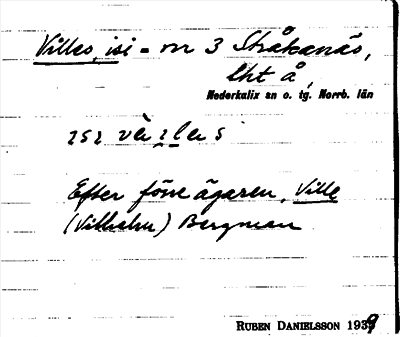 Villes, isi - nr 3 Stråkanäs,
lht å,
Nederkalix sn o. tg. Norrb. län
Efter förre ägaren, Ville
(Vilhelm) Bergman
RUBEN DANIELSSON 1939